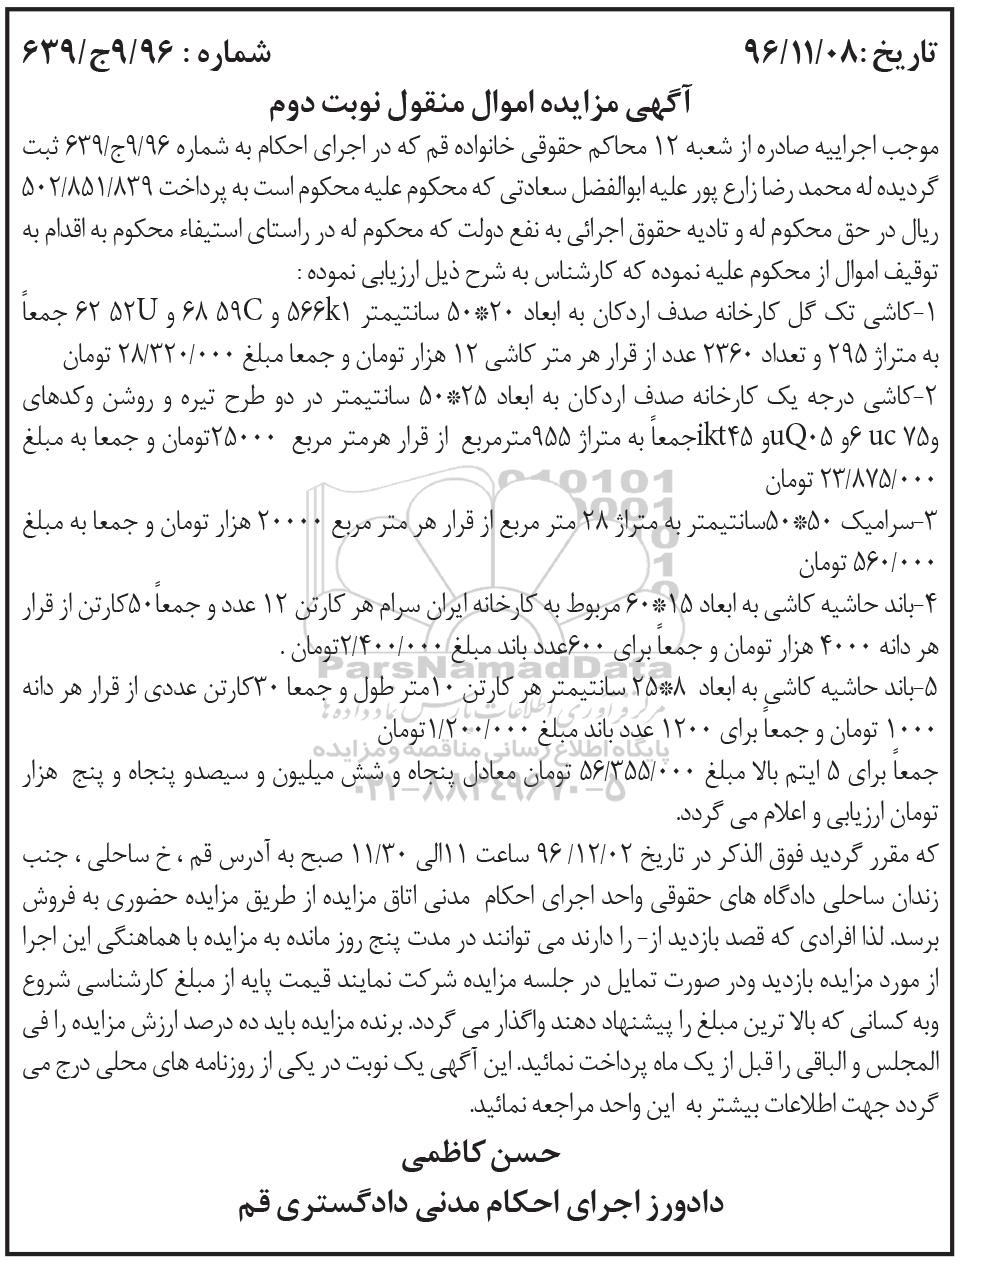 تاریخ :۹۶/۱۱/۰۸
شماره : ۹/۹۶ج/۶۳۹
آگهی مزایده اموال منقول نوبت دوم
موجب اجراییه صادره از شعبه ۱۲ محاکم حقوقی خانواده قم که در اجرای احکام به شماره ۹/۹۶ج/۶۳۹ ثبت
گردیده له محمد رضا زارع پور علیه ابوالفضل سعادتی که محکوم علیه محکوم است به پرداخت ۵۰۲/۸۵۱/۸۳۹
ریال در حق محکوم له و تادیه حقوق اجرائی به نفع دولت که محکوم له در راستای استیفاء محکوم به اقدام به
توقیف اموال از محکوم علیه نموده که کارشناس به شرح ذیل ارزیابی نموده :
۱-کاشی تک گل کارخانه صدف اردکان به ابعاد ۲۰*۵۰ سانتیمتر ۵۶۶k۱ و ۶۸ ۵۹C و ۶۲ ۵۲U جمعاً
به متراژ ۲۹۵ و تعداد ۲۳۶۰ عدد از قرار هر متر کاشی ۱۲ هزار تومان و جمعا مبلغ ۲۸/۳۲۰/۰۰۰ تومان
۲-کاشی درجه یک کارخانه صدف اردکان به ابعاد ۲۵*۵۰ سانتیمتر در دو طرح تیره و روشن وکدهای
و۷۵ uc ۶و uQ۰۵و ikt۴۵جمعاً به متراژ ۹۵۵مترمربع از قرار هرمتر مربع ۲۵۰۰۰تومان و جمعا به مبلغ
۲۳/۸۷۵/۰۰۰ تومان
۳-سرامیک ۵۰*۵۰سانتیمتر به متراژ ۲۸ متر مربع از قرار هر متر مربع ۲۰۰۰۰ هزار تومان و جمعا به مبلغ
۵۶۰/۰۰۰ تومان
۴-باند حاشیه کاشی به ابعاد ۱۵*۶۰ مربوط به کارخانه ایران سرام هر کارتن ۱۲ عدد و جمعاً۵۰کارتن از قرار
هر دانه ۴۰۰۰ هزار تومان و جمعاً برای ۶۰۰عدد باند مبلغ ۲/۴۰۰/۰۰۰تومان .
۵-باند حاشیه کاشی به ابعاد ۸*۲۵ سانتیمتر هر کارتن ۱۰متر طول و جمعا ۳۰کارتن عددی از قرار هر دانه
۱۰۰۰ تومان و جمعاً برای ۱۲۰۰ عدد باند مبلغ ۱/۲۰۰/۰۰۰تومان
جمعاً برای ۵ ایتم بالا مبلغ ۵۶/۳۵۵/۰۰۰ تومان معادل پنجاه و شش میلیون و سیصدو پنجاه و پنج هزار
تومان ارزیابی و اعلام می گردد.
که مقرر گردید فوق الذکر در تاریخ ۹۶/۱۲/۰۲ ساعت ۱۱الی ۱۱/۳۰ صبح به آدرس قم ، خ ساحلی ، جنب
زندان ساحلی دادگاه های حقوقی واحد اجرای احکام مدنی اتاق مزایده از طریق مزایده حضوری به فروش
برسد. لذا افرادی که قصد بازدید از- را دارند می توانند در مدت پنج روز مانده به مزایده با هماهنگی این اجرا
از مورد مزایده بازدید ودر صورت تمایل در جلسه مزایده شرکت نمایند قیمت پایه از مبلغ کارشناسی شروع
وبه کسانی که بالا ترین مبلغ را پیشنهاد دهند واگذار می گردد. برنده مزایده باید ده درصد ارزش مزایده را فی
المجلس و الباقی را قبل از یک ماه پرداخت نمائید. این آگهی یک نوبت در یکی از روزنامه های محلی درج می
گردد جهت اطلاعات بیشتر به این واحد مراجعه نمائید.
حسن کاظمی
دادورز اجرای احکام مدنی دادگستری قم
ParsNamadData
پایگاه اطلاع رسانی مناقصه و مزایده
۰۲۱-۸۸۳۴۹۶۷۰-۵